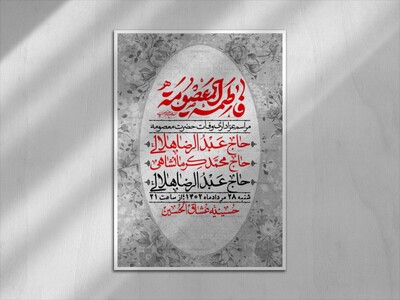 فاطمة المعصومة
مراسم عزاداری وفات حضرت معصومه
حاج عبدالرضا هلالی
حاج محمد کرمانشاهی
حاج عبدالرضا هلالی
شنبه ۲۸ مردادماه ۱۴۰۲ | از ساعت ۲۱
حسینیه عشاق الحسین